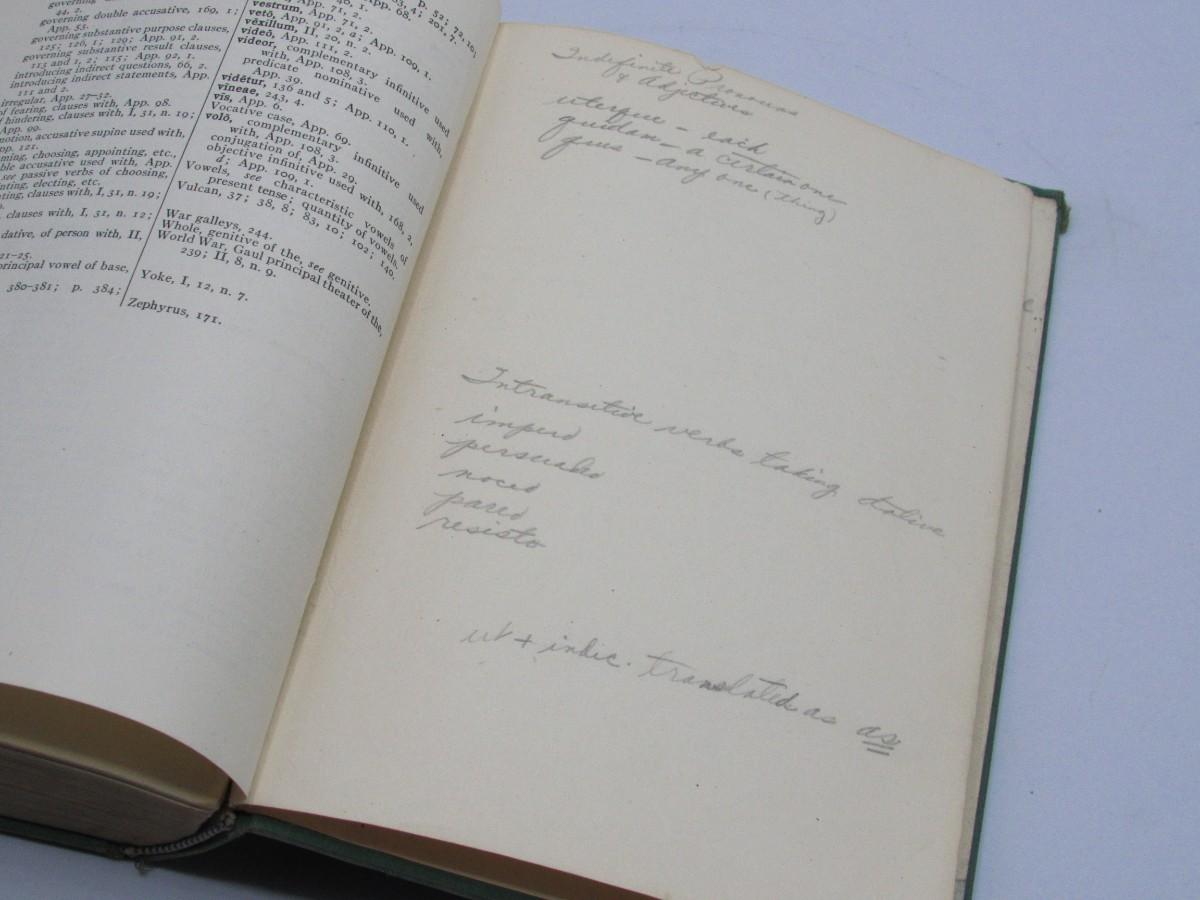 governing double accusative, 169, 1;
App. 53.
governing substantive purpose clauses,
125; 126, 1; 129; App. 91, 2.
governing substantive result clauses,
113 and 1, 2; 115; App. 92, 1.
introducing indirect questions, 66, 2.
introducing indirect statements, App.
111 and 2.
irregular, App. 27-32.
of fearing, clauses with, App. 98.
of hindering, clauses with, I, 31, n. 19;
App. 99.
motion, accusative supine used with,
App. 121.
ming, choosing, appointing, etc.,
ble accusative used with, App.
see passive verbs of choosing,
nting, electing, etc.
ting, clauses with, I, 31, n. 19;
clauses with, I, 31, n. 12;
dative, of person with, II,
21-25.
principal vowel of base,
380-381; p. 384;
vestrum, App. 71, 2.
vetō, App. 91, 2, a; App. 109, 1.
vēxillum, II, 20, n. 2.
videō, App. 111, 2.
videor, complementary infinitive used
with, App. 108, 3.
predicate nominative used with,
App. 39.
vidētur, 136 and 5; App. 110, 1.
vineae, 243, 4.
vīs, App. 6.
Vocative case, App. 69.
volō, complementary infinitive used
with, App. 108, 3.
conjugation of, App. 29.
objective infinitive used with, 168, 2,
d; App. 109, 1.
Vowels, see characteristic vowels of
present tense; quantity of vowels.
Vulcan, 37; 38, 8; 83, 10; 102; 140.
War galleys, 244.
Whole, genitive of the, see genitive.
World War, Gaul principal theater of the,
239; II, 8, n. 9.
Yoke, I, 12, n. 7.
Zephyrus, 171.
Indefinite Pronouns
& Adjectives
uterque - each
quidam - a certain one
quis - any one (thing)
Intransitive verbs taking dative
impero
persuadeo
noceo
pareo
resisto
ut + indic. translated as as